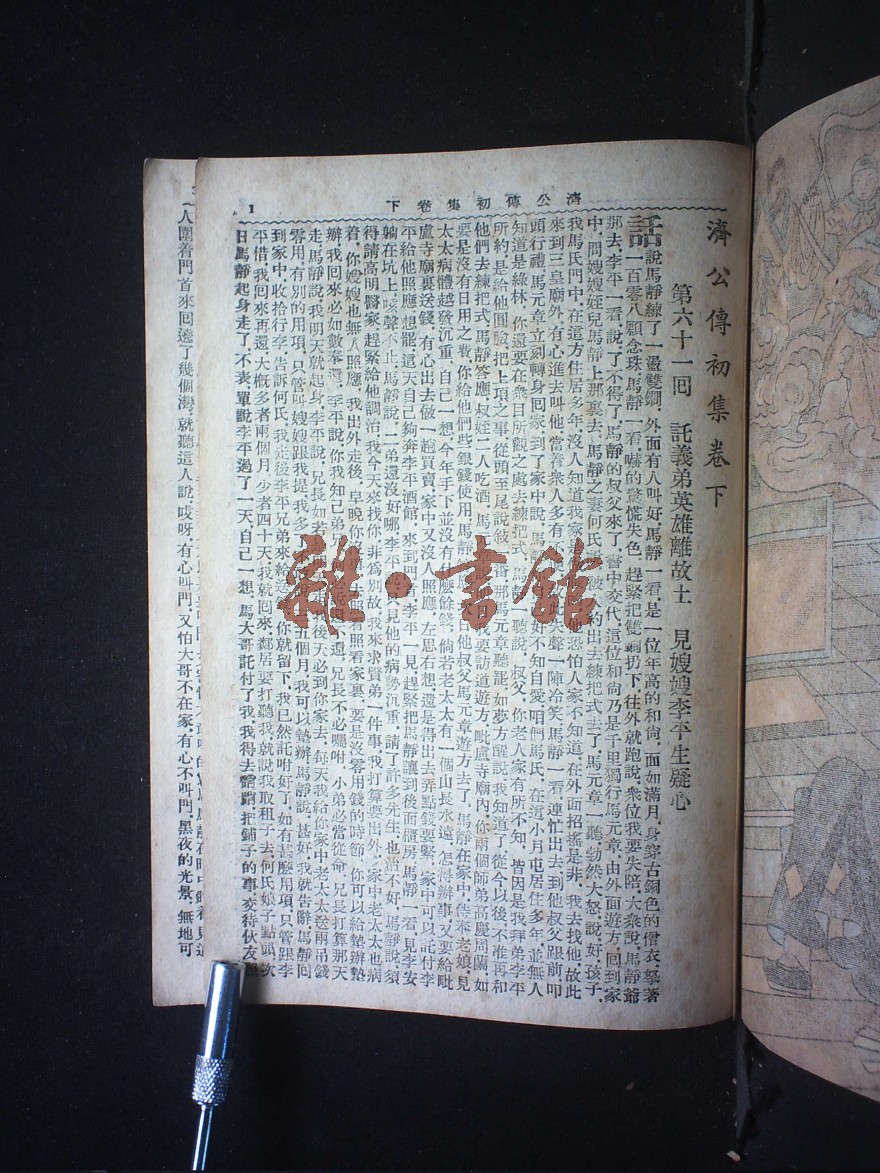 濟公傳初集卷下
濟公傳初集卷下
第六十一回 託義弟英雄離故土 見嫂嫂李平生疑心
話說馬靜練了一盪雙鐧,外面有人叫好,馬靜一看,是一位年高的和尙,面如滿月,身穿古銅色的僧衣,拏著
一百零八顆念珠,馬靜一看,嚇的驚慌失色,趕緊把雙鐧扔下,往外就跑,說,衆位我要失陪,大衆說,馬靜爺
那去,李平一看,說了不得了,馬靜的叔父來了,書中交代,這位和尙乃是千里獨行馬元章,由外面遊方,回到家
中,問嫂嫂姪兒馬靜上那裏去,馬靜之妻何氏說,被 約出去練把式去了,馬元章一聽,勃然大怒,說好孩子,
我馬氏門中,在這方住居多年,沒人知道我家 恐怕人家不知道,在外面招搖是非,我去找他,故此
來到三皇廟外,有心進去叫他,當着衆人多有 笑聲一陣冷笑,馬靜一看,連忙出去,到他叔父跟前叩
頭行禮,馬元章立刻轉身回家,到了家中,說,馬靜 好不知自愛,咱們馬氏,在這小月屯居住多年,並無人
知道是綠林,你還要在衆目所觀之處去練把式,馬靜一聽,說,叔父,你老人家有所不知,皆因是我拜弟李平
所約,是給他圓臉,把上項之事,從頭至尾說 那元章聽罷,如夢方醒,說我知道了,從今以後,不准再和
他們去練把式,馬靜答應,叔姪二人吃酒,馬 我要訪道遊方,毗盧寺廟內,你兩個師弟高慶周蘭,如
要是沒有日用之費,你給他們些銀錢使用,馬靜 他叔父馬元章遊方去了,馬靜在家中,侍奉老娘,見
太太病體越發沉重,自己一想,今年手下並沒有什麼餘錢,倘若老太太有一個山長水遠,怎得辦事,又要給毗
盧寺廟裏送錢,有心出去做一趟買賣,家中又沒人照應,左思右想,還是得出去弄點錢要緊,家中可以託付李
平給他照應,想罷,這天自己夠奔李平酒館,來到門 李平一見,趕緊把馬靜讓到後面櫃房,馬靜一看,見李安
躺在坑上,咳聲不止,馬靜說,二弟還沒好哪,李平 見他的病勢沉重,請了許多先生,也治不好,馬靜說,須
得請高明醫家,趕緊給他調治,我今天來找你,非爲別故,我來求賢弟一件事,我打算要出外,家中老太太也病
着,你嫂嫂也無人照應,我出外走後,早晚你 去照看照看家裏,要是沒零用錢的時節,你可以給墊辦墊
辦,我回來必如數奉還,李平說,你我知己弟 還,兄長不必囑咐,小弟必當從命,兄長打算那天
走,馬靜說,我明天就起身,李平說,兄長如若 後天必到你家去,每天我給你家中老太太送兩吊錢
零用,有別的用項,只管叫嫂嫂跟我提,我多 五個月,我可以墊辦,馬靜說,甚好,我就告辭,馬靜回
到家中,收拾行李,告訴何氏,我走後,李平兄弟來給 你就留下,我已然託咐好了,如有甚麼用項,只管跟李
平借,我回來再還,大槪多者兩個月,少者四十天,我就回來,鄰居要打聽我,就說我取租子去,何氏娘子點頭,次
日馬靜起身走了,不表,單說李平過了一天,自己一想,馬大哥託付了我,我得去瞧瞧,把鋪子的事交待伙友
人圍着門首來回遶了幾個灣,就聽這人說,哎呀,有心叫門,又怕大哥不在家,有心不叫門,黑夜的光景,無地可
1
雜·書館